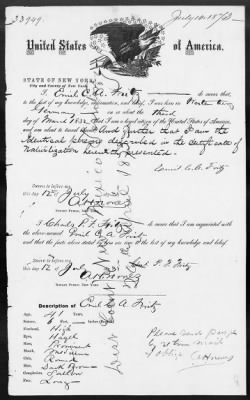 33909
July 12 1873
United States of America.
STATE OF NEW YORK,
City and County of New York,
I, Emil C. A. Fritz do swear, that,
to the best of my knowledge, information, and belief, I was born in
Germany on or about the third
day of March 1832 that I am a legal citizen of the United States of America,
and am about to travel abroad. And further that I am the
identical person described in the Certificate of
Naturalization herewith presented.
Emil C. A. Fritz
Sworn to before me
this 12th July
NOTARY PUBLIC, NEW YORK.
I Charles P. F. Fritz do swear that I am acquainted with
the above-named Emil C. A. Fritz and
that the facts above stated are true to the best of my knowledge and belief.
Sworn to before me
this 12 July
NOTARY PUBLIC, NEW YORK.
Description of Emil C. A. Fritz
Age, 41 Years
Stature, 6 Feet
Forehead, High
Eyes, Hazel
Nose, Prominent
Mouth,
Chin, Round
Hair, Dark Brown
Complexion, Sallow
Face, Long
Please send
by return mail